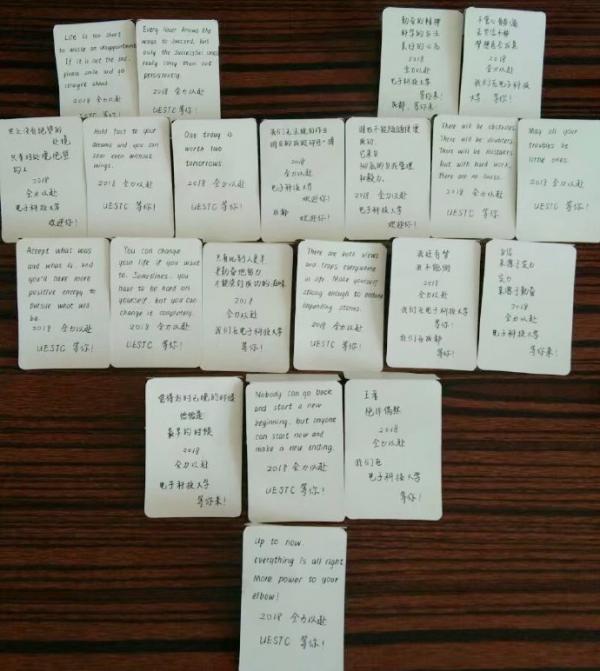 Life is too short
to waste on disappointment
If it is not the end,
please smile and go
straight ahead.
2018 全力以赴
UESTC 等你!
Every loser knows the
ways to succeed, but
only the successful ones
really carry them out
persistently.
2018 全力以赴
UESTC 等你!
勤奋的精神
科学的方法
良好的心态
2018
全力以赴
电子科技大学
等你来!
成都, 等你来!
2018
全力以赴
我们在电子科技
大学 等你!
世上没有绝望的
处境
只有对处境绝望
的人
2018
全力以赴
电子科技大学
欢迎你!
Hold fast to your
dreams and you can
soar even without
wings.
2018 全力以赴
UESTC 等你!
One today is
worth two
tomorrows.
2018 全力以赴
UESTC 等你!
2018
全力以赴
电子科技大学
欢迎你!
成都
欢迎你!
成功,
它来自
彻底的自我管理
和毅力.
2018 全力以赴
电子科技大学
欢迎你!
There will be obstacles.
There will be doubters.
There will be mistakes.
But with hard work,
there are no limits.
2018 全力以赴
UESTC 等你!
May all your
troubles be
little ones.
2018 全力以赴
UESTC 等你!
Accept what was
and what is, and
you'll have more
positive energy to
pursue what will
be.
2018 全力以赴
UESTC 等你!
You can change
your life if you want
to. Sometimes, you
have to be hard on
yourself, but you can
change it completely.
2018 全力以赴
UESTC 等你!
只有比别人更早
更勤奋地努力
才能尝到成功的滋味
2018
全力以赴
我们在电子科技大学
等你!
There are both views
and traps everywhere
in life. Make yourself
strong enough to endure
impending storms.
2018 全力以赴
UESTC 等你!
2018
全力以赴
我们在电子科技大学
等你!
我们在成都
等你!
自信
来源于实力
实力
来源于勤奋
2018
全力以赴
电子科技大学
等你来!
觉得为时已晚的时候
恰恰是
最早的时候
2018
全力以赴
电子科技大学
等你来!
Nobody can go back
and start a new
beginning, but anyone
can start now and
make a new ending.
2018 全力以赴
UESTC 等你!
绝非偶然
2018
全力以赴
我们在
电子科技大学
等你!
Up to now,
everything is all right
More power to your
elbow!
2018 全力以赴
UESTC 等你!